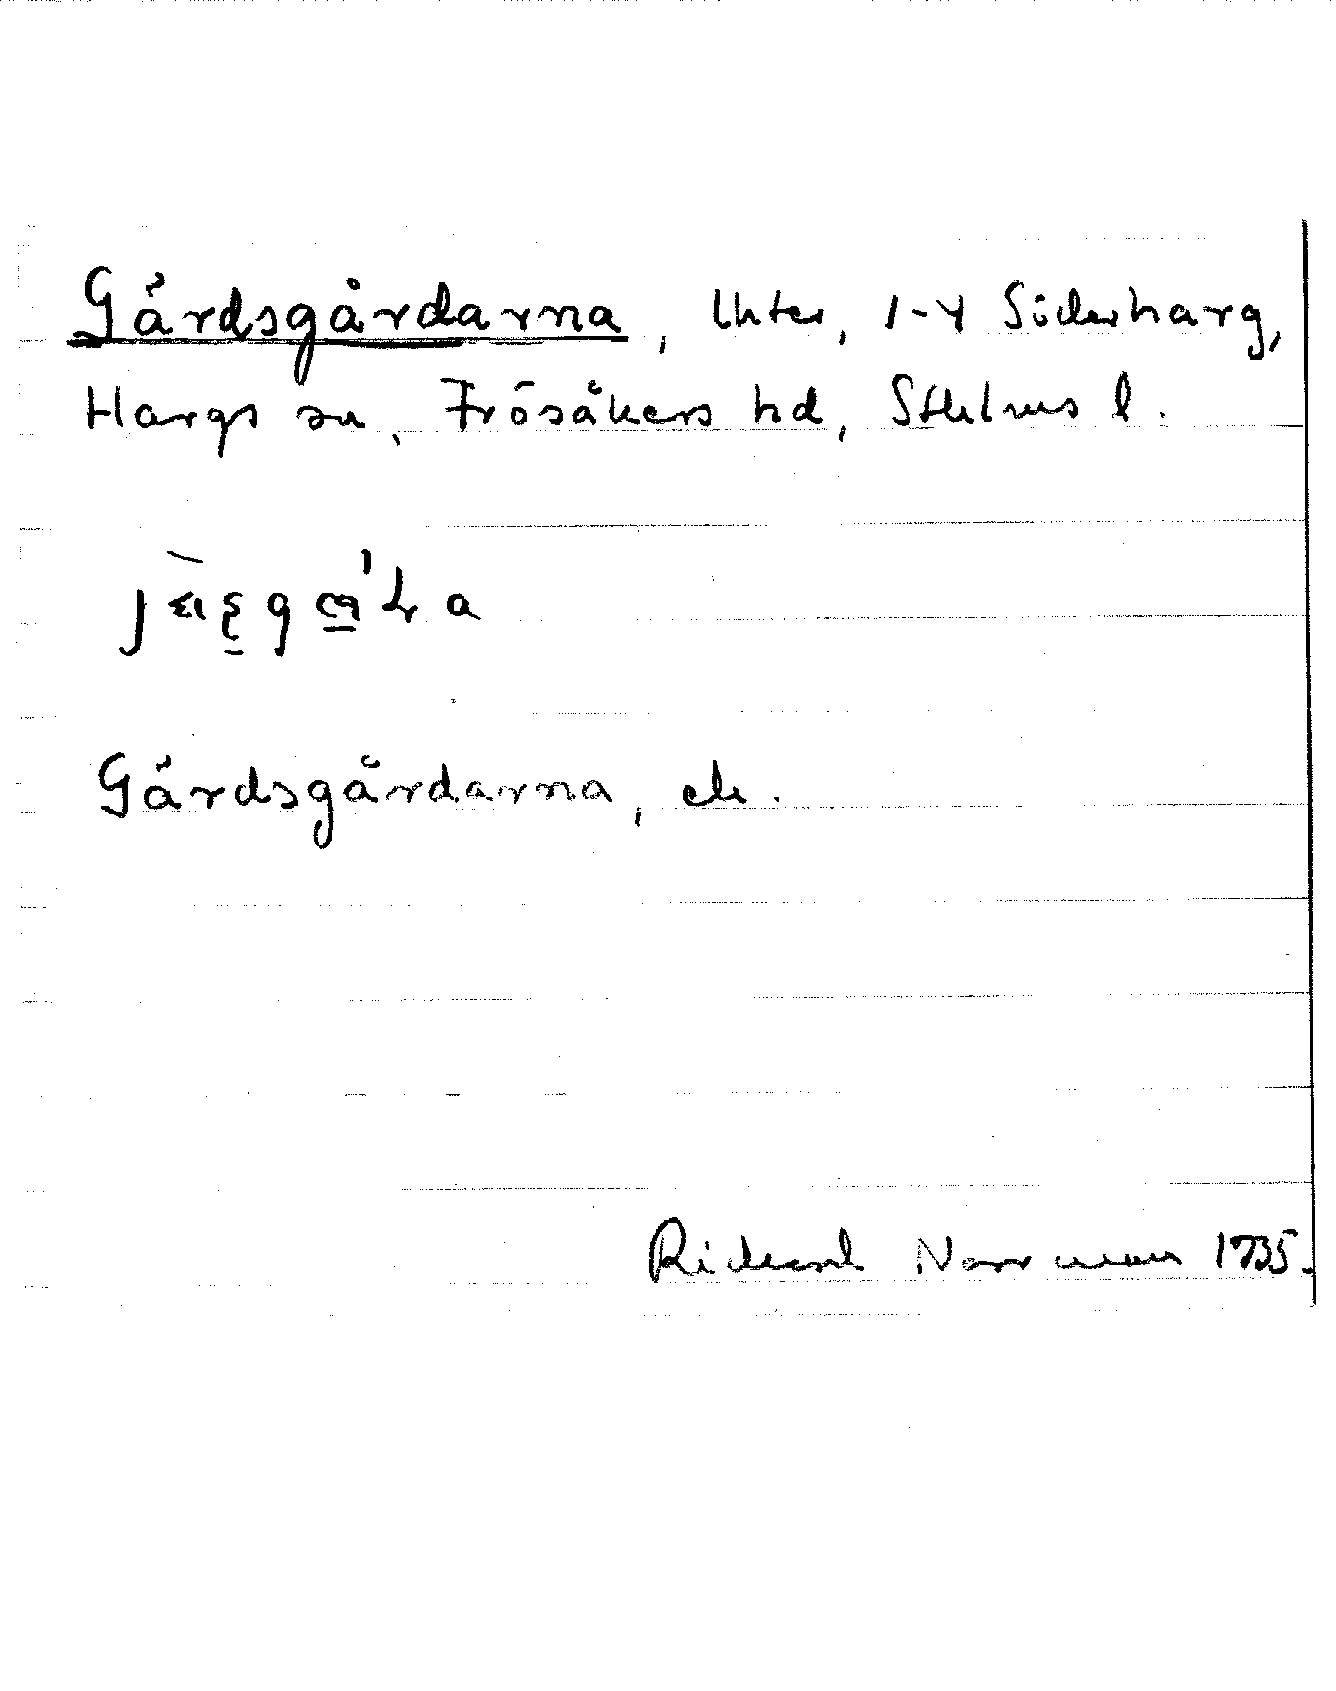 Gärdsgårdarna, Uhter, 1-4 Söderharg,
Hargs sn, Frösåkers hd, Sthlms l.
Gärdsgårdarna, ek.
Rickard Norrman 1935.